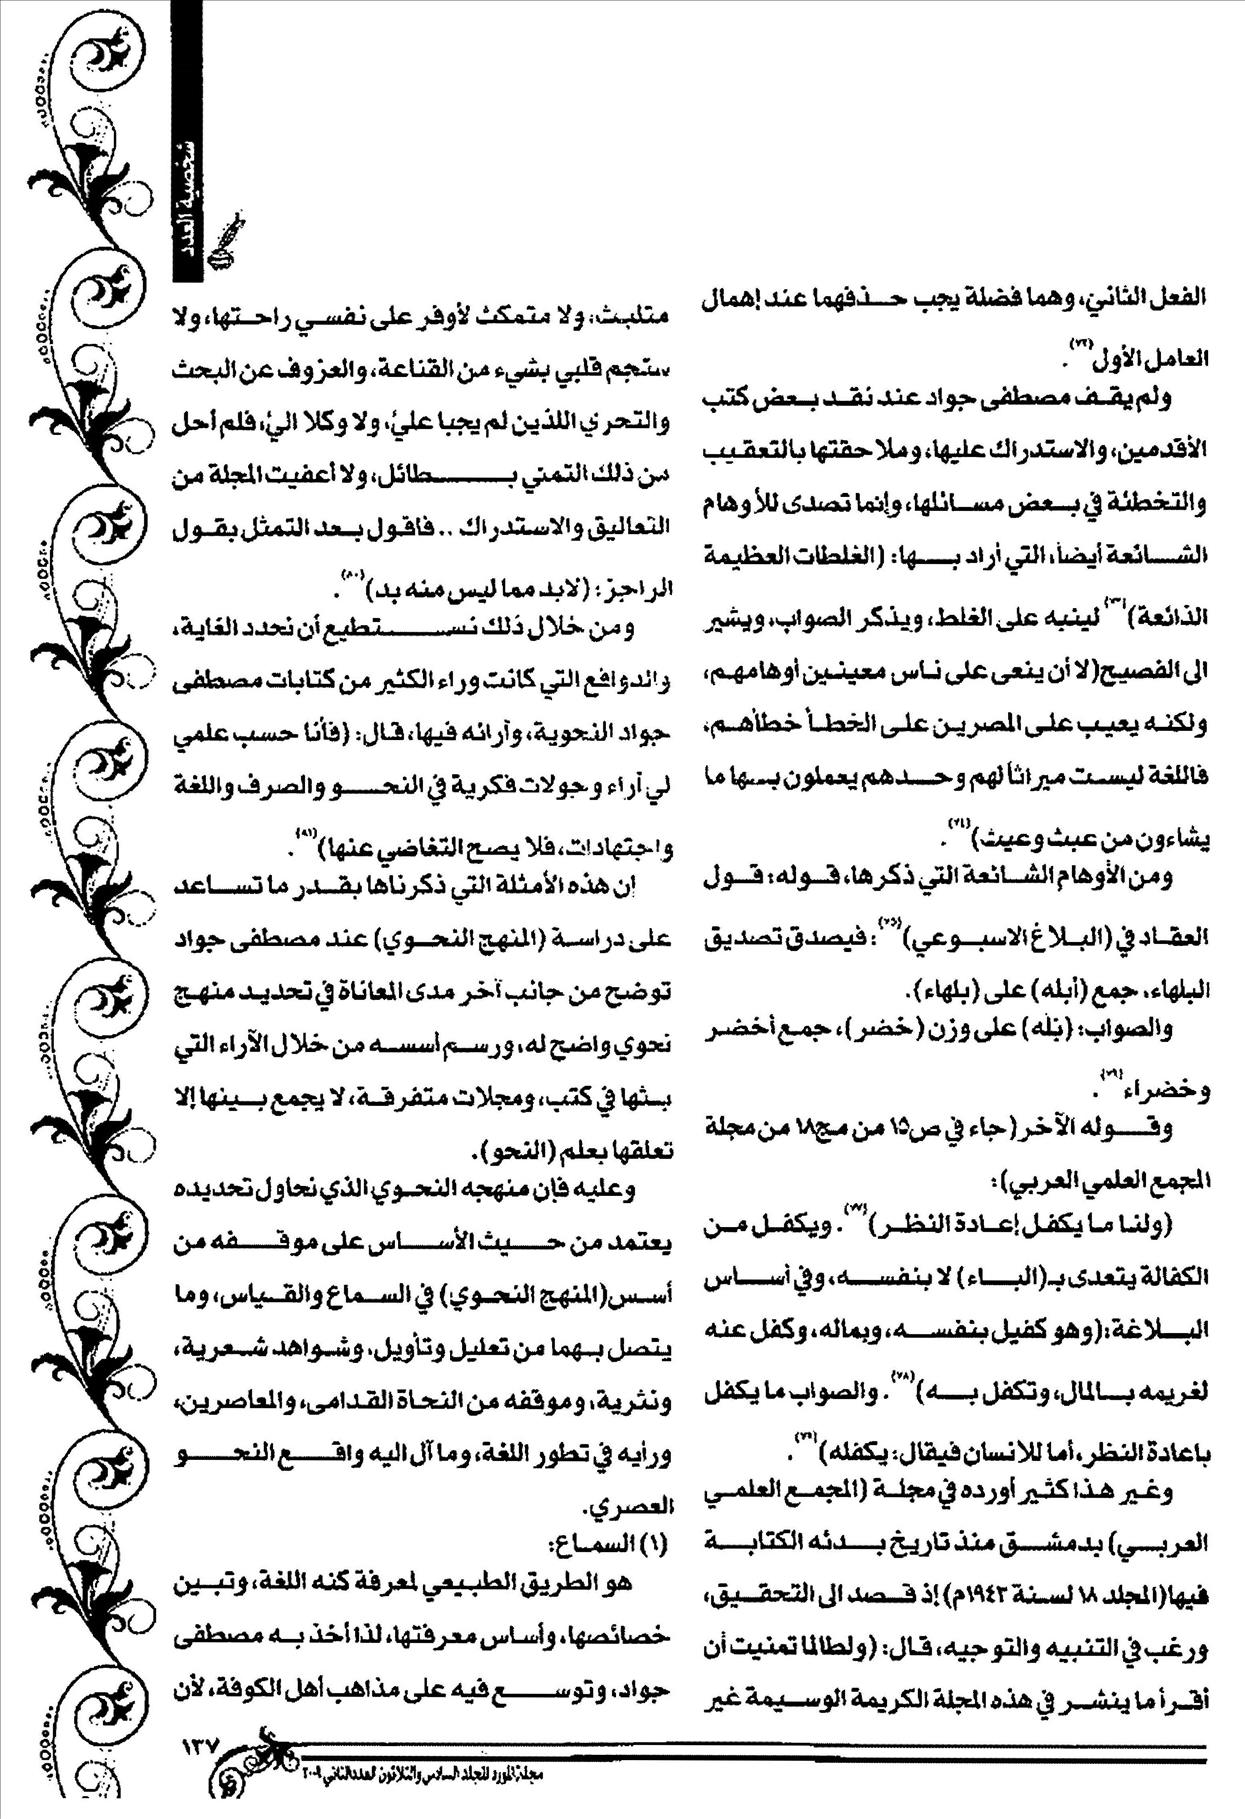 شخصية العدد
الفعل الثاني، وهما فضلة يجب حذفهما عند إهمال
العامل الأول(٧٢).
ولم يقف مصطفى جواد عند نقد بعض كتب
الأقدمين، والاستدراك عليها، وملاحقتها بالتعقيب
والتخطئة في بعض مسائلها، وإنما تصدى للأوهام
الشائعة أيضاً، التي أراد بها: (الغلطات العظيمة
الذائعة)(٧٣) لينبه على الغلط، ويذكر الصواب، ويشير
الى الفصيح(لا أن ينعى على ناس معينين أوهامهم،
ولكنه يعيب على المصرين على الخطأ خطأهم،
فاللغة ليست ميراثاً لهم وحدهم يعملون بها ما
يشاءون من عبث وعيث)(٧٤).
ومن الأوهام الشائعة التي ذكرها، قوله: قول
العقاد في (البلاغ الاسبوعي)(٧٥): فيصدق تصديق
البلهاء، جمع (أبله) على (بلهاء).
والصواب: (بُله) على وزن (خضر)، جمع أخضر
وخضراء(٧٦).
وقوله الآخر(جاء في ص١٥ من مج١٨ من مجلة
المجمع العلمي العربي):
(ولنا ما يكفل إعادة النظر)(٧٧). ويكفل من
الكفالة يتعدى بـ(الباء) لا بنفسه، وفي أساس
البلاغة:(وهو كفيل بنفسه، وبماله، وكفل عنه
لغريمه بالمال، وتكفل به)(٧٨). والصواب ما يكفل
باعادة النظر، أما للانسان فيقال: يكفله)(٧٩).
وغير هذا كثير أورده في مجلة (المجمع العلمي
العربي) بدمشق منذ تاريخ بدئه الكتابة
فيها(المجلد ١٨ لسنة ١٩٤٣م) إذ قصد الى التحقيق،
ورغب في التنبيه والتوجيه، قال: (ولطالما تمنيت أن
أقرأ ما ينشر في هذه المجلة الكريمة الوسيمة غير
متلبث، ولا متمكث لأوفر على نفسي راحتها، ولا
ستجم قلبي بشيء من القناعة، والعزوف عن البحث
والتحري اللذين لم يجبا علي، ولا وكلا الي، فلم أحل
من ذلك التمني بطائل، ولا أعفيت المجلة من
التعاليق والاستدراك .. فاقول بعد التمثل بقول
الراجز: (لابد مما ليس منه بد)(٨٠).
ومن خلال ذلك نستطيع أن نحدد الغاية،
والدوافع التي كانت وراء الكثير من كتابات مصطفى
جواد النحوية، وآرائه فيها، قال: (فأنا حسب علمي
لي أراء وجولات فكرية في النحو والصرف واللغة
واجتهادات، فلا يصح التغاضي عنها)(٨١).
إن هذه الأمثلة التي ذكرناها بقدر ما تساعد
على دراسة (المنهج النحوي) عند مصطفى جواد
توضح من جانب آخر مدى المعاناة في تحديد منهج
نحوي واضح له، ورسم أسسه من خلال الآراء التي
بثها في كتب، ومجلات متفرقة، لا يجمع بينها إلا
تعلقها بعلم (النحو).
وعليه فإن منهجه النحوي الذي نحاول تحديده
يعتمد من حيث الأساس على موقفه من
أسس(المنهج النحوي) في السماع والقياس، وما
يتصل بهما من تعليل وتأويل، وشواهد شعرية،
ونثرية، وموقفه من النحاة القدامى، والمعاصرين،
ورأيه في تطور اللغة، وما آل اليه واقع النحو
العصري.
(١) السماع:
هو الطريق الطبيعي لمعرفة كنه اللغة، وتبين
خصائصها، وأساس معرفتها، لذا أخذ به مصطفى
جواد، وتوسع فيه على مذاهب أهل الكوفة، لأن
١٣٧
مجلة المورد المجلد السادس والثلاثون العدد الثاني ٢٠٠٩